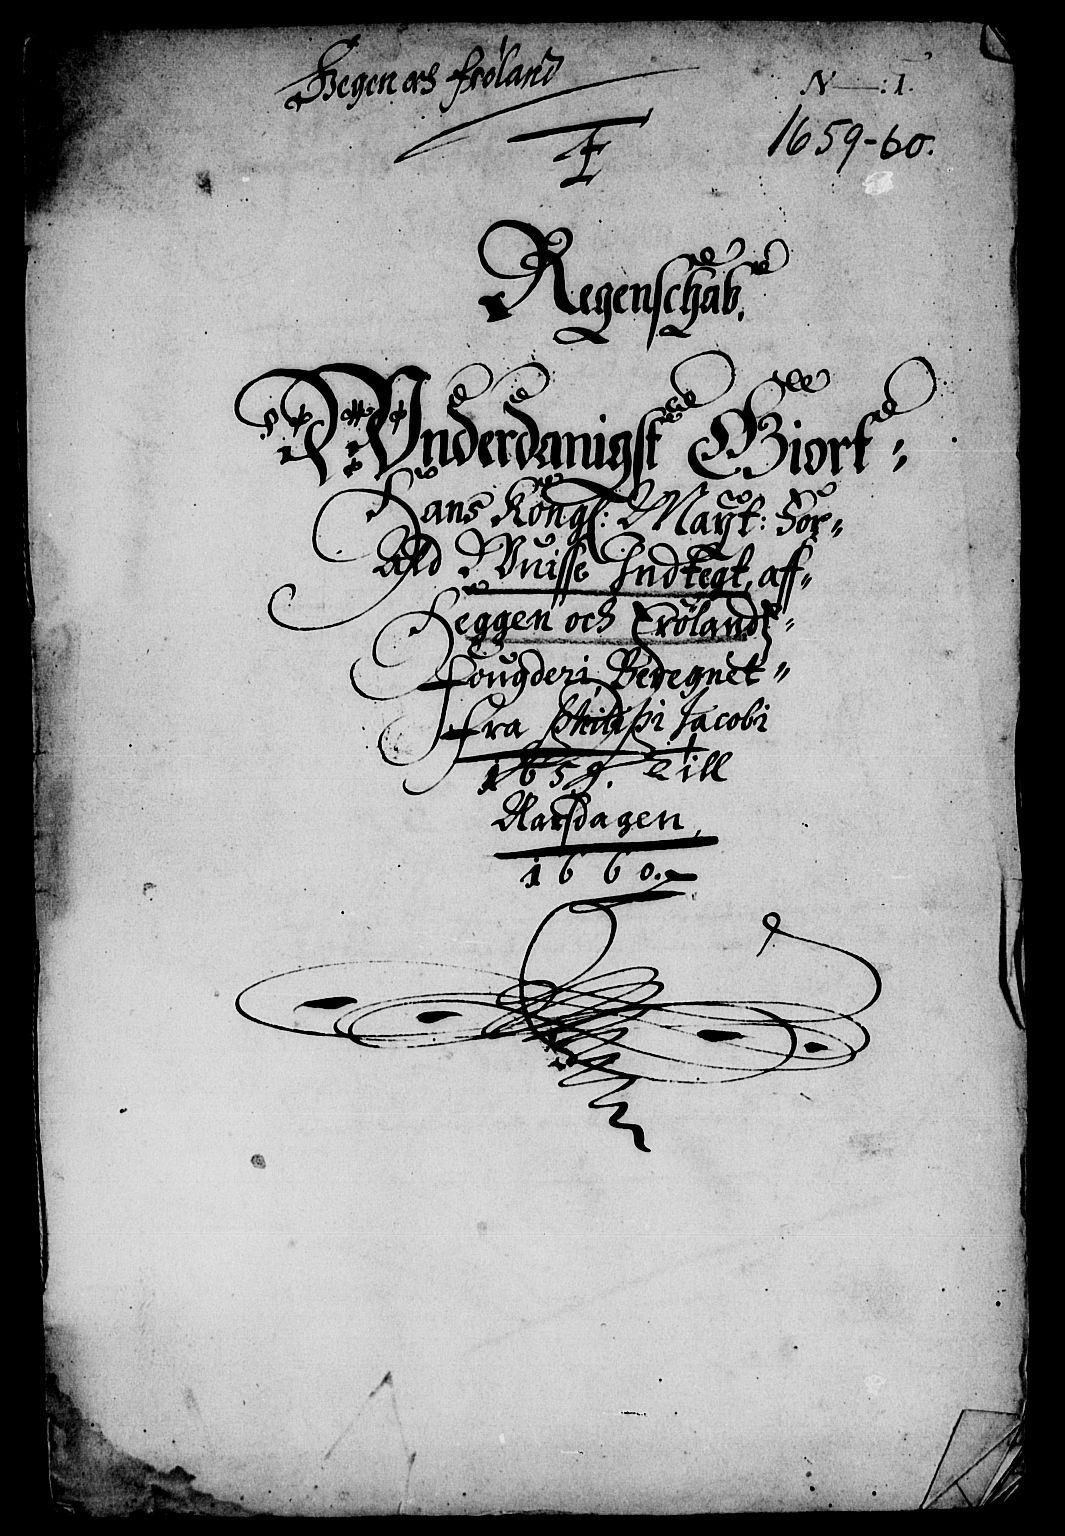 Hegen och Fröland
N——: 1.
1659-60.
F
Regenschab.
Vnderdanigst Giort
Hans Kongl: Mayt: For-
Uld Wuisse Indtegt, aff
Heggen och Frölandz
Fougderi, Beregnet
Fra Philipi Jacobi
1659. Till
Aarsdagen
1660.